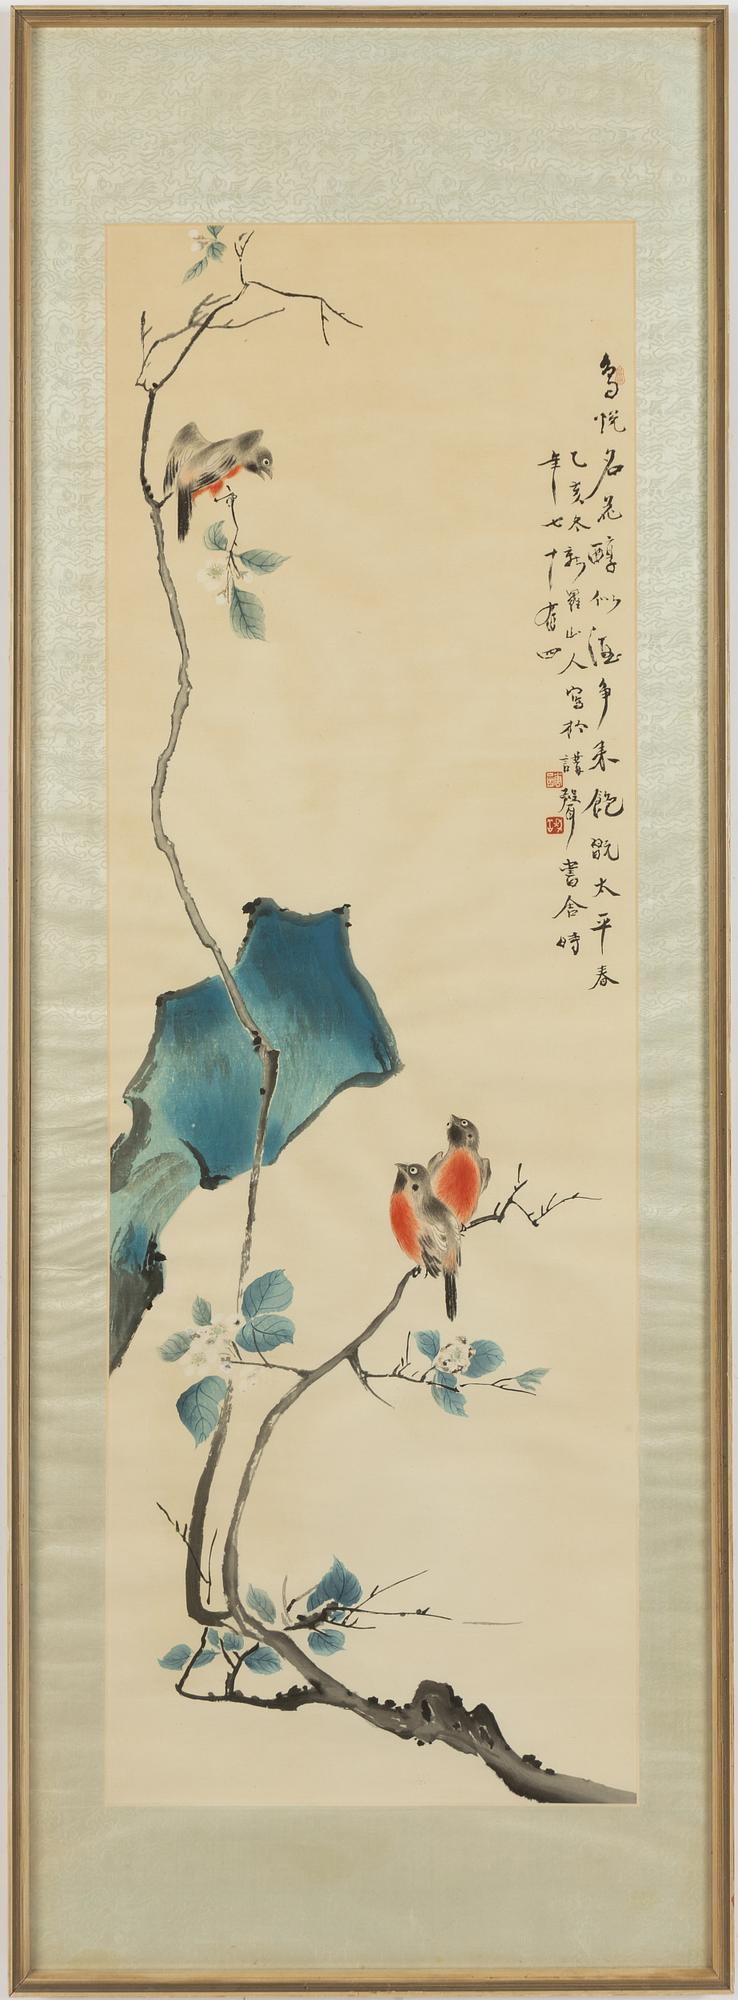 鳥悅名花醇似酒爭來飽翫太平春
乙亥冬新羅山人寫於講聲書舍時
年七十有四